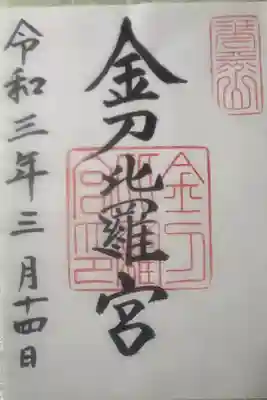 金刀比羅宮
令和三年三月十四日